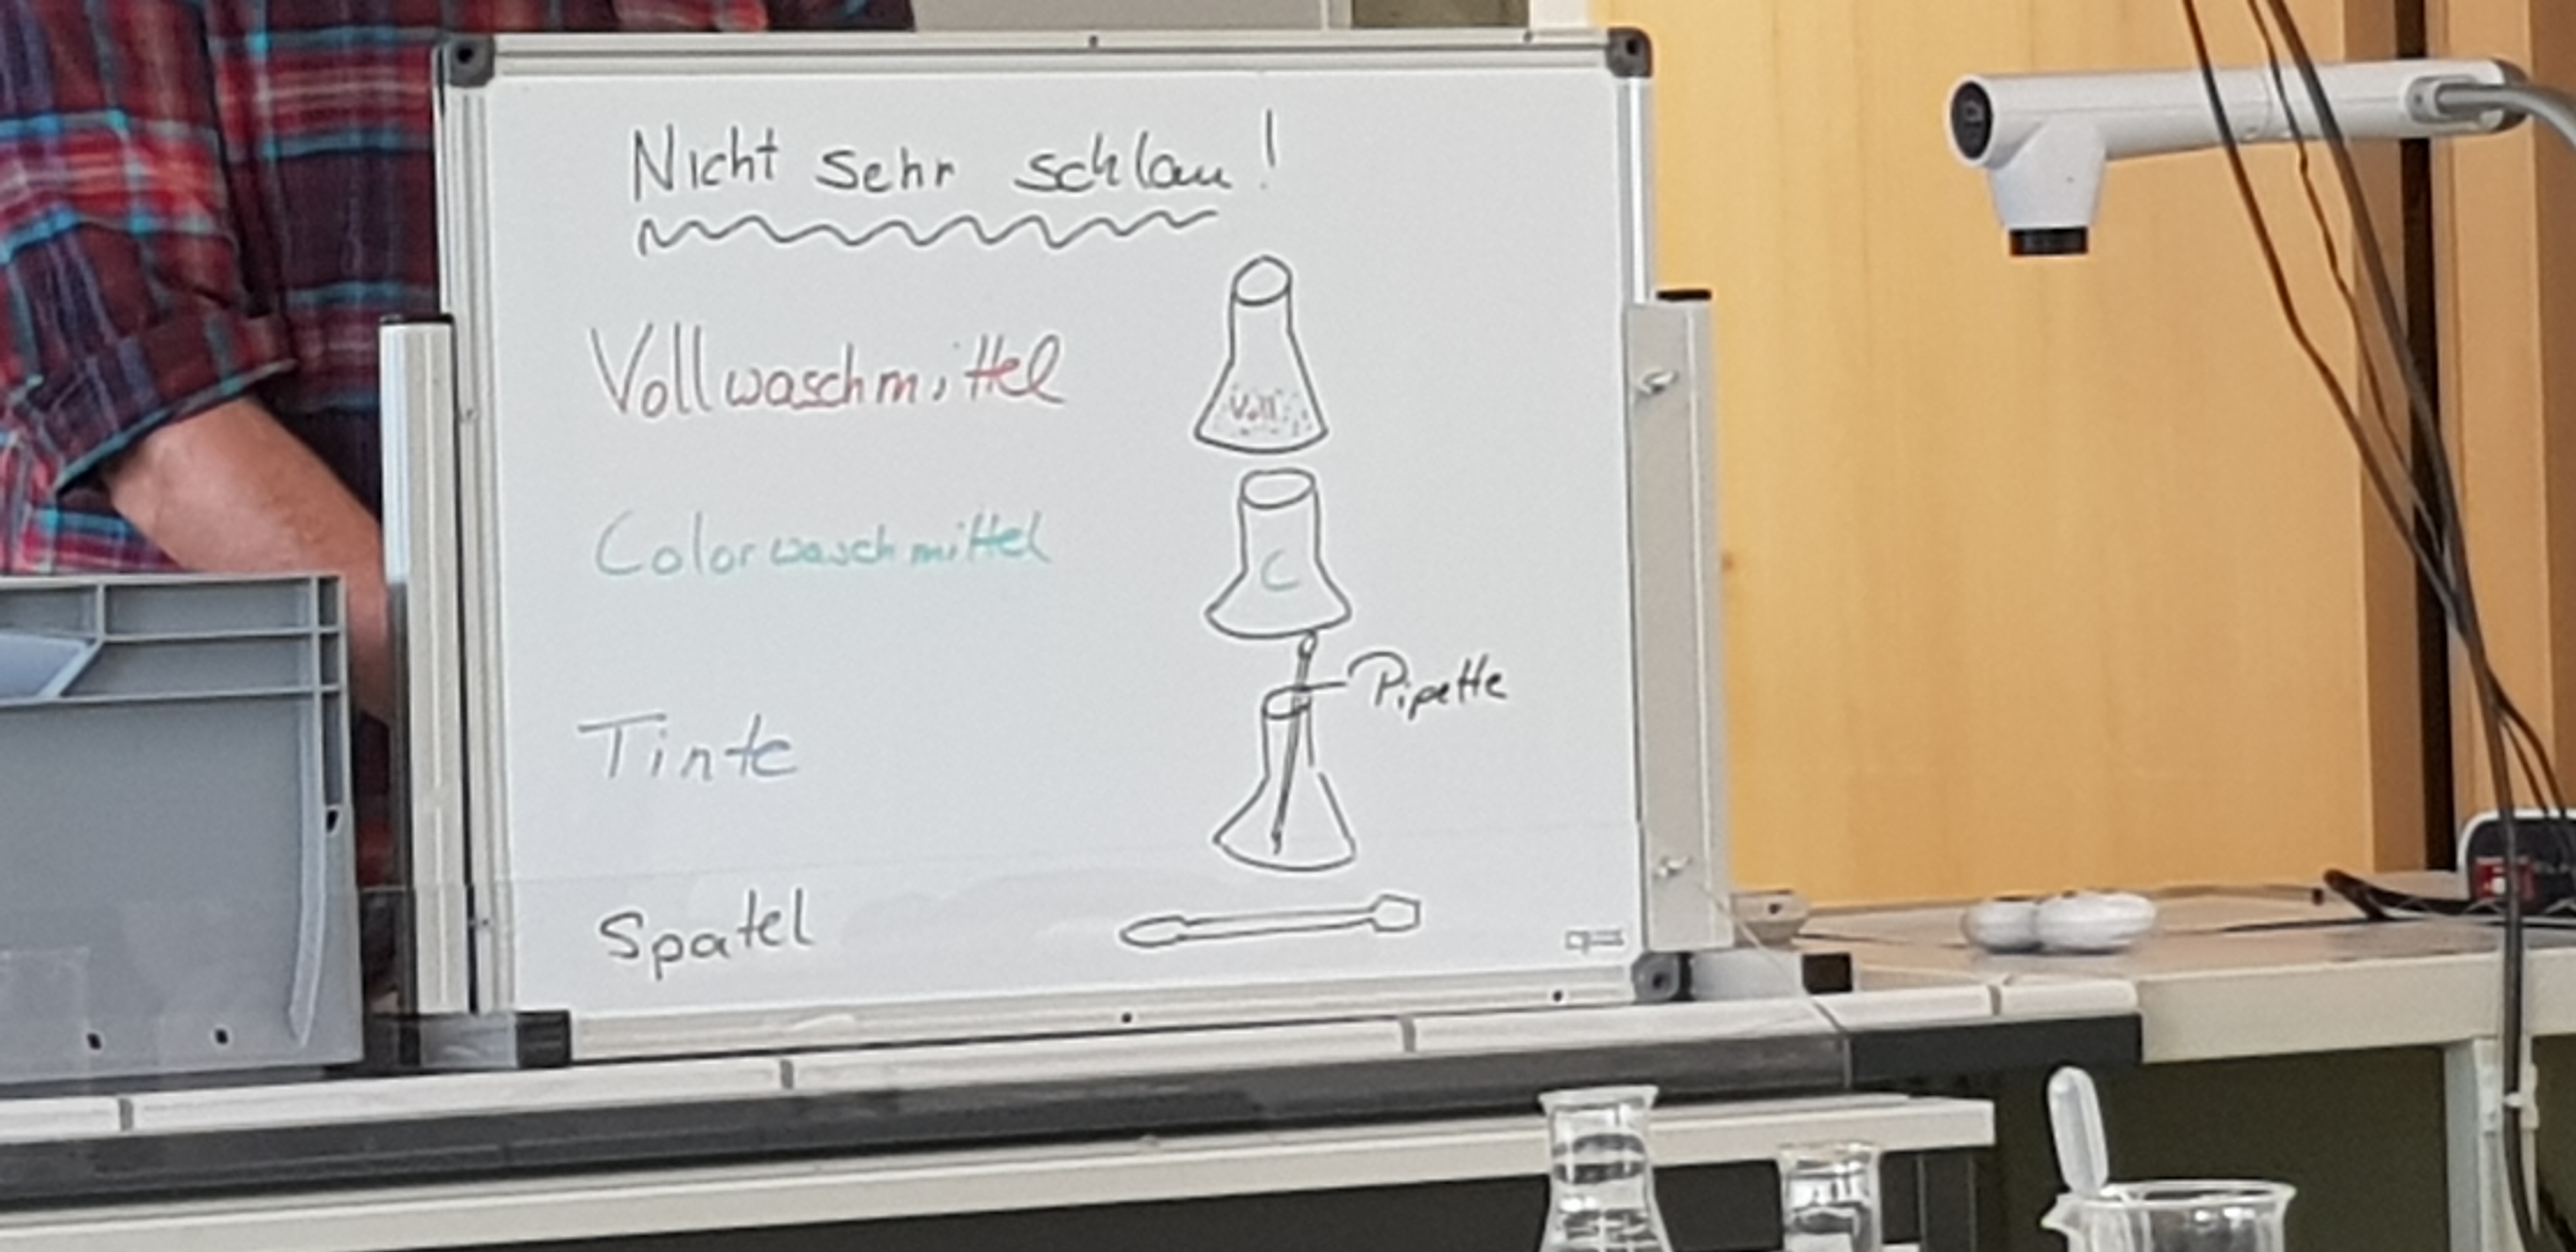 Nicht sehr schlau!
Vollwaschmittel
Voll
Colorwaschmittel
C
Pipette
Tinte
Spatel